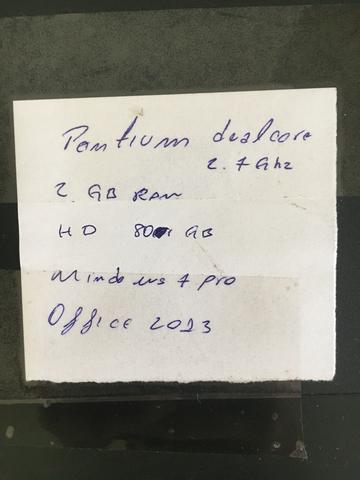 Pantium dualcore
2.7 Ghz
2 GB RAM
HD 80 GB
Windows 7 pro
Office 2013